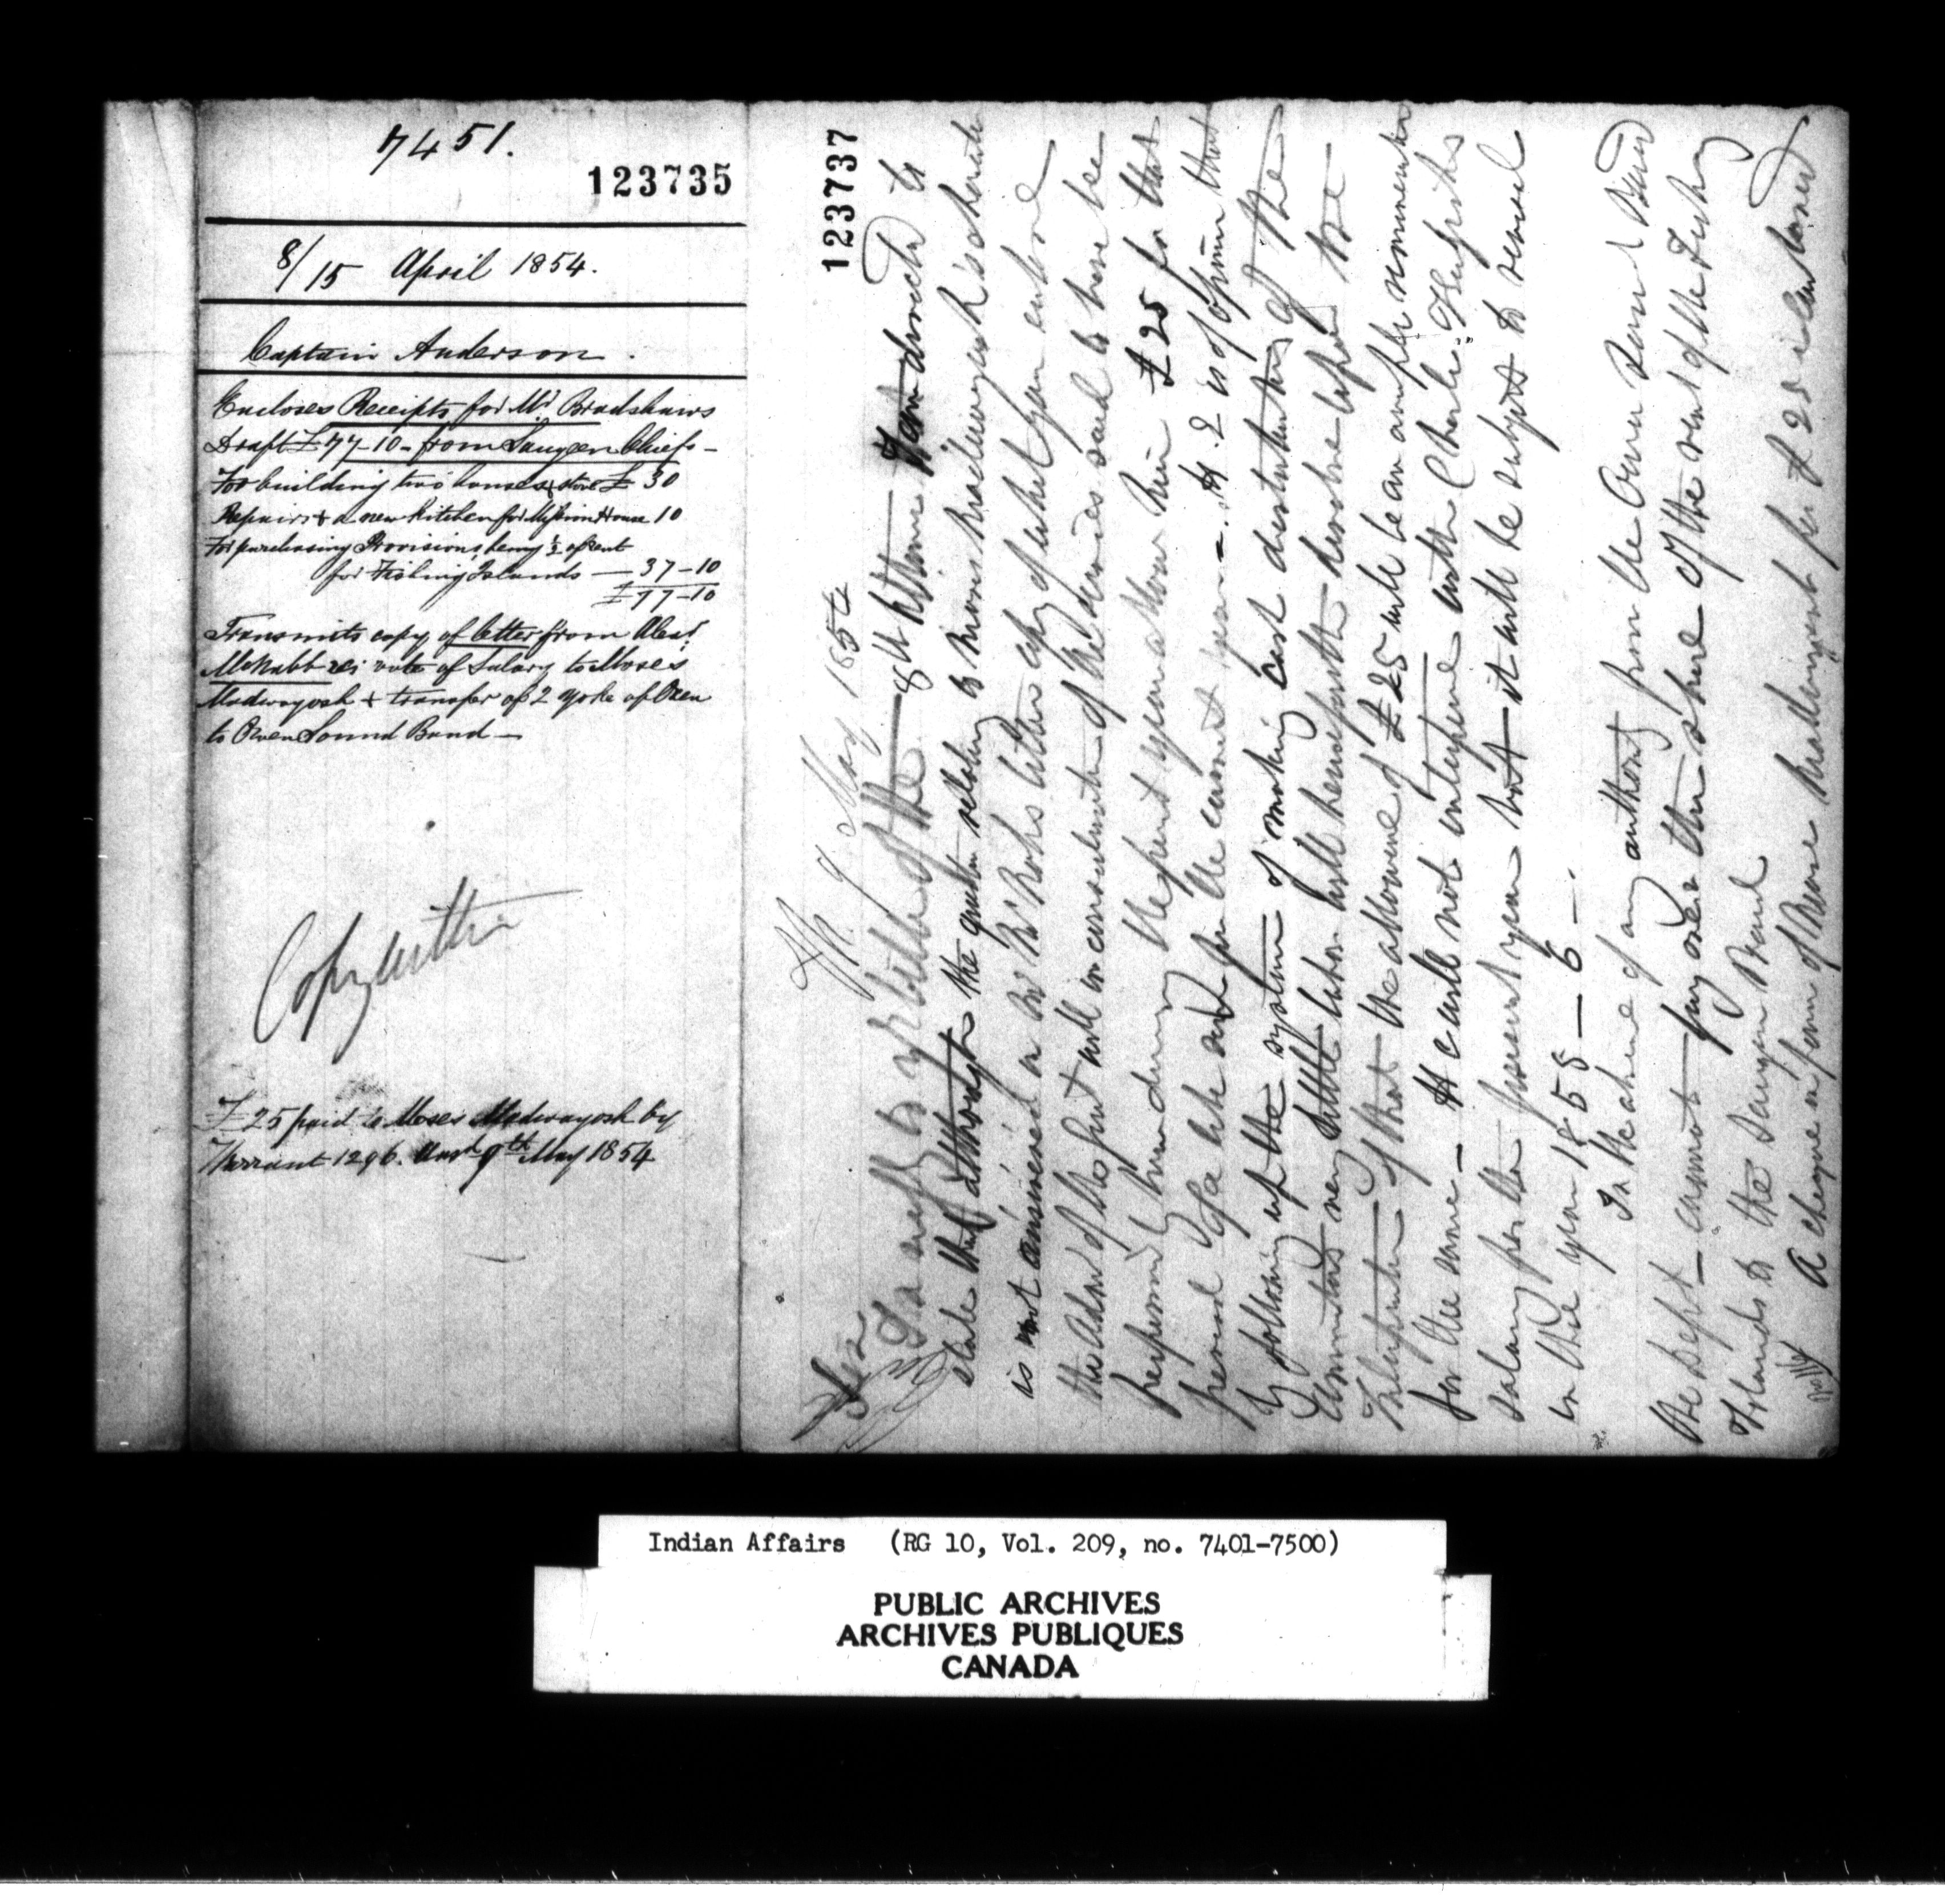 7451.
123735
8/15 April 1854.
Captain Anderson.
Encloses Receipts for Mr. Bradshaws
Draft £77-10- from Saugeen Chiefs -
For building two houses & store £ 30
Repairs & a new Kitchen for Mission House 10
For purchasing Provisions, being ½ of rent
for Fishing Islands — 37-10
£77-10
Transmits copy of letter from Alexr.
McNabb re: vote of Salary to Moses
Madwayosh & transfer of 2 yoke of Oxen
to Owen Sound Band —
Copy within
£25 paid to Moses Madwayosh by
Warrant 1296. 9th May 1854
123737
May 1854
Sir
In reply to yr letter of the 8th Ultimo I am directed to
state that although the question relating to Moses Madwayosh's
is not in Mr letter
the in consideration of the services said to have been
performed by him during the past year allow him £25 for that
period & a like sum for the current year -. H. 2 is of opinion that
by following up the system of making east of the
very little labor will henceforth devolve upon the
Interpreter & that the allowance of £25 will be an ample remuneration
for the same - H will not interfere with Charles
salary for the present year but it will be subject to
in the year 1855 — 6 —.
In the absence of any authority from the Owen Sound Band
the Dept - cannot pay over their share of the rent of the Fishing
Islands to the Saugeen Band
A cheque in favor of Moses Madwayosh for £25 is
Indian Affairs (RG 10, Vol. 209, no. 7401-7500)
PUBLIC ARCHIVES
ARCHIVES PUBLIQUES
CANADA